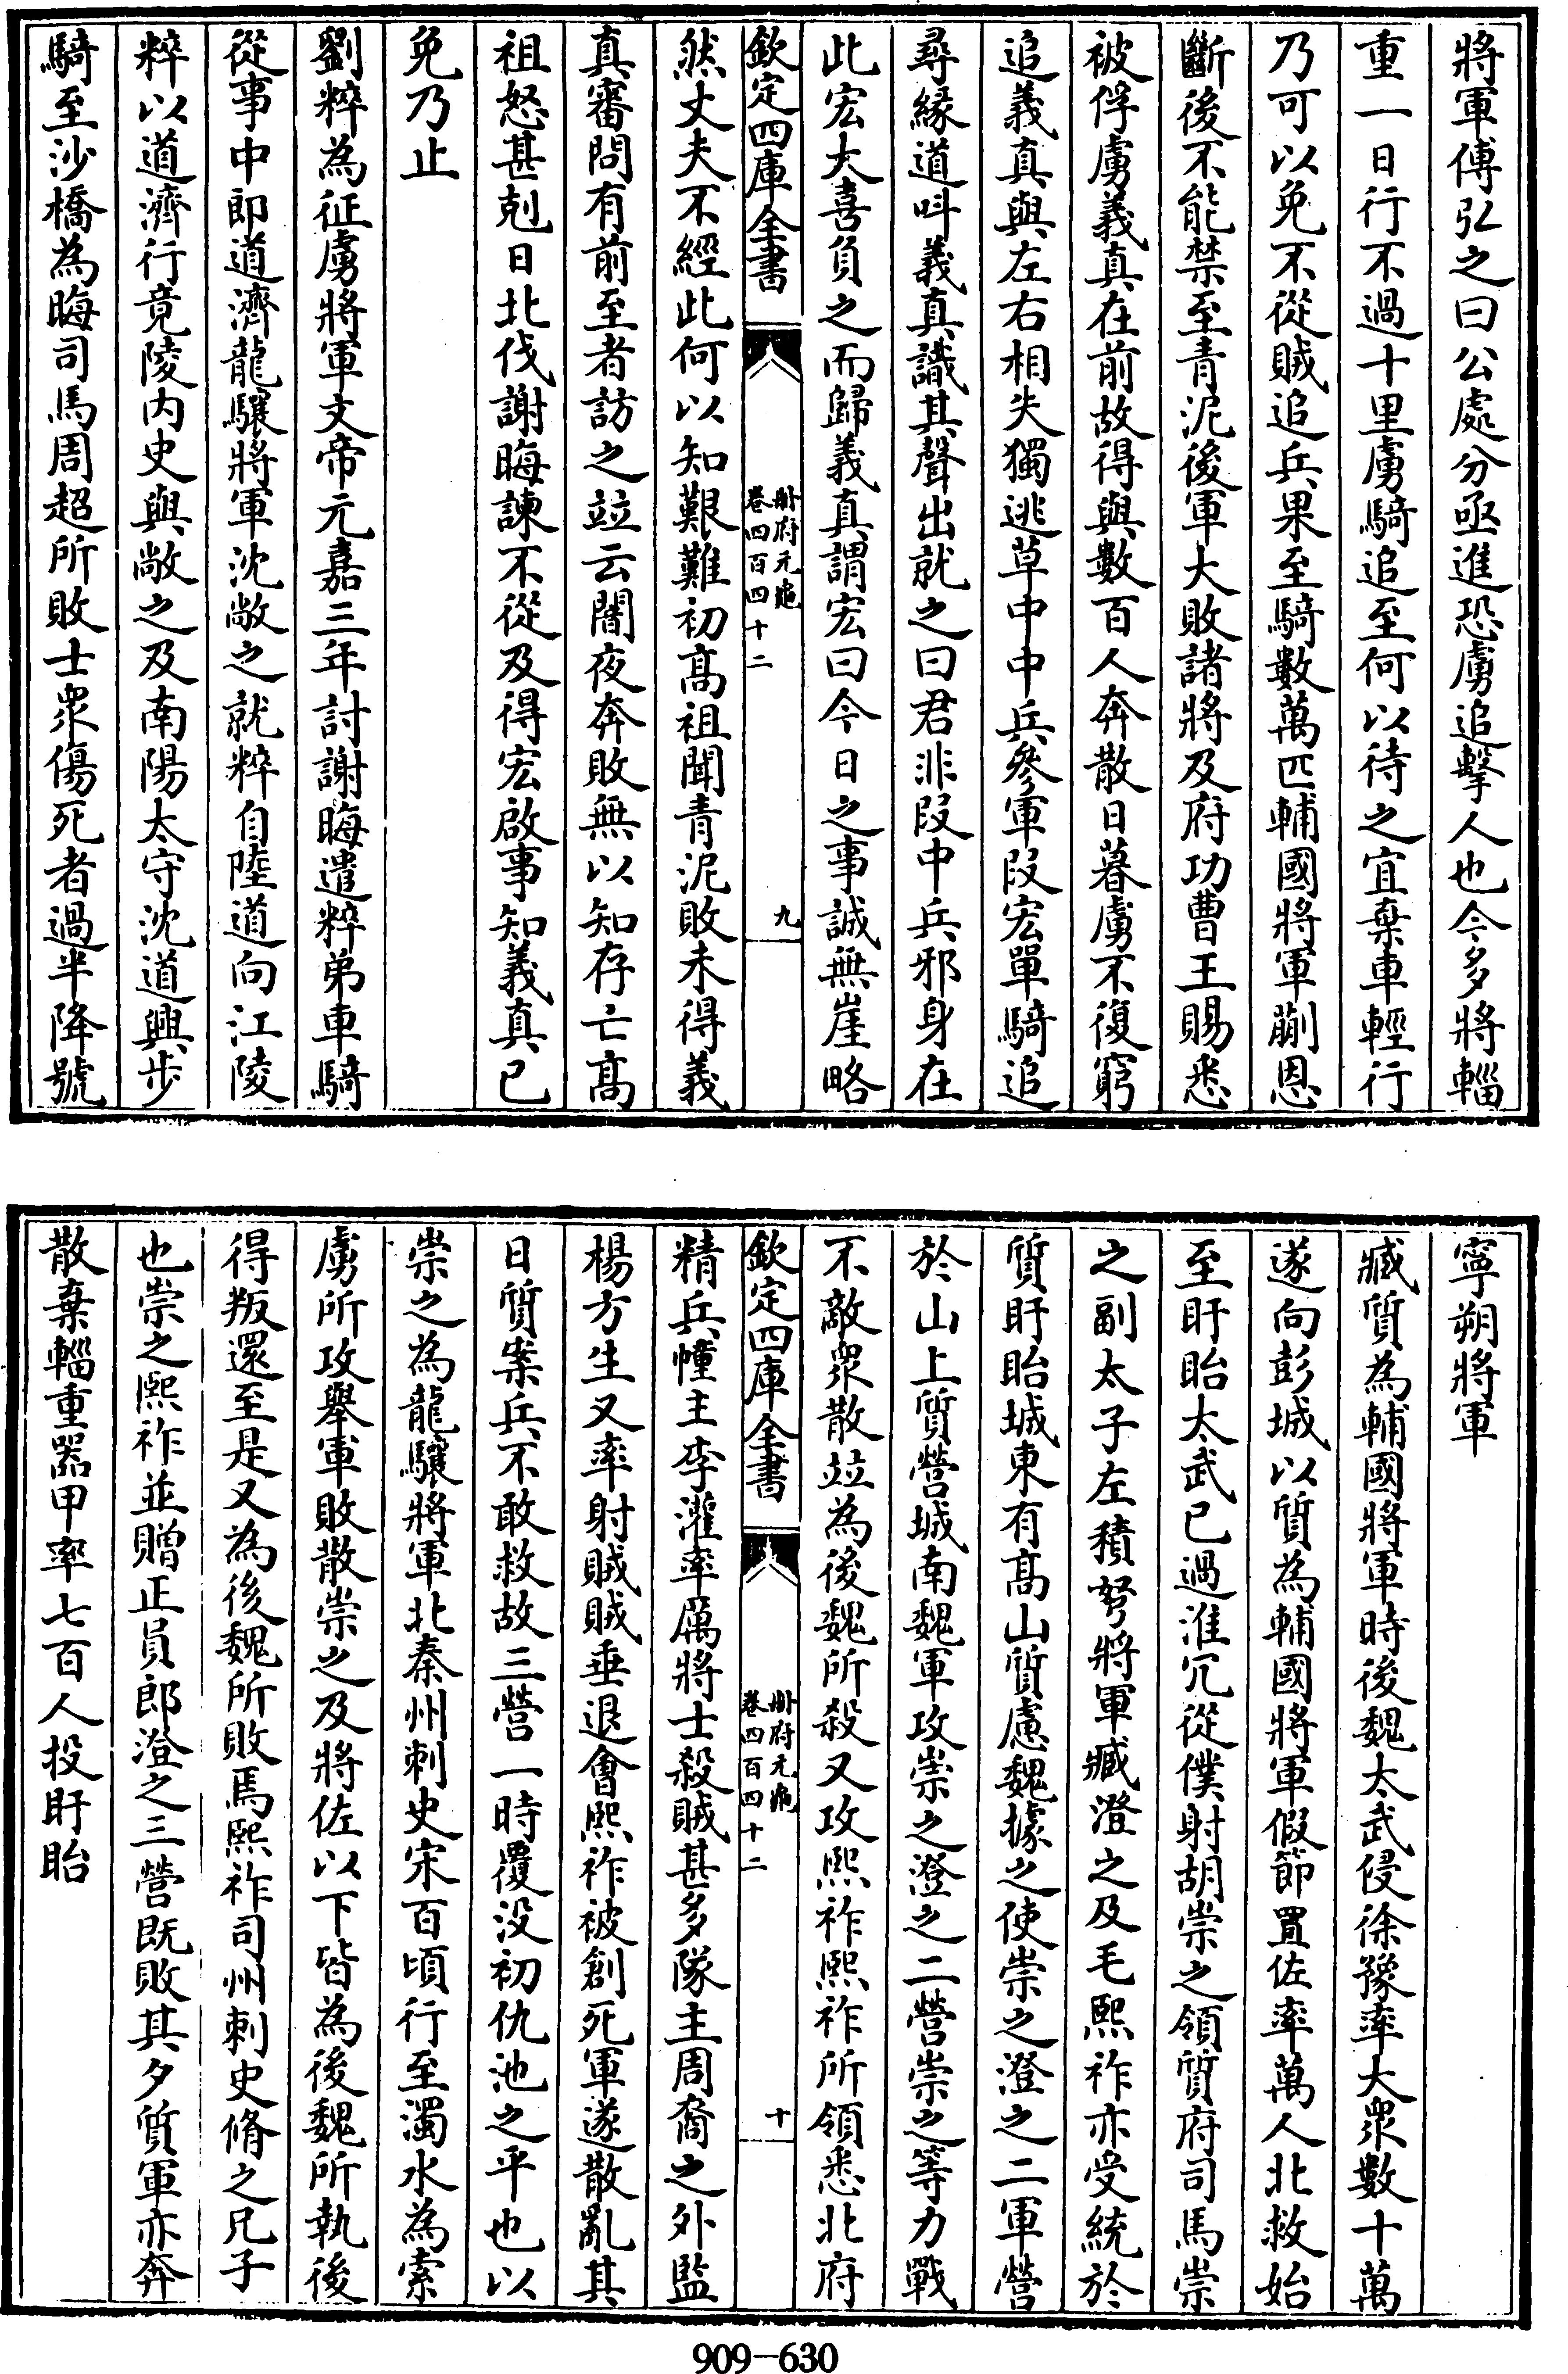 將軍傅弘之曰公處分亟進恐虜追擊人也今多將輜
重一日行不過十里虜騎追至何以待之宜棄車輕行
乃可以免不從賊追兵果至騎數萬匹輔國將軍蒯恩
斷後不能禁至青泥後軍大敗諸將及府功曹王賜悉
被俘虜義真在前故得與數百人奔散日暮虜不復窮
追義真與左右相失獨逃草中中兵參軍段宏單騎追
尋緣道呌義真識其聲出就之曰君非段中兵邪身在
此宏大喜負之而歸義真謂宏曰今日之事誠無崖略
欽定四庫全書
册府元龜
卷四百四十二
九
然丈夫不經此何以知艱難初髙祖聞青泥敗未得義
真審問有前至者訪之竝云闇夜奔敗無以知存亡髙
祖怒甚剋日北伐謝晦諫不從及得宏啟事知義真已
免乃止
劉粹為征虜將軍文帝元嘉三年討謝晦遣粹弟車騎
從事中郎道濟龍驤將軍沈敞之就粹自陸道向江陵
粹以道濟行竟陵內史與敞之及南陽太守沈道興步
騎至沙橋為晦司馬周超所敗士衆傷死者過半降號
寧朔將軍
臧質為輔國將軍時後魏太武侵徐豫率大衆數十萬
遂向彭城以質為輔國將軍假節置佐率萬人北救始
至盱眙太武已過淮冗從僕射胡崇之領質府司馬崇
之副太子左積弩將軍臧澄之及毛熙祚亦受統於
質盱眙城東有髙山質慮魏據之使崇之澄之二軍營
於山上質營城南魏軍攻崇之澄之二營崇之等力戰
不敵衆散竝為後魏所殺又攻熙祚熙祚所領悉北府
欽定四庫全書
册府元龜
卷四百四十二
十
精兵幢主李灌率厲將士殺賊甚多隊主周裔之外監
楊方生又率射賊賊垂退會熙祚被創死軍遂散亂其
日質案兵不敢救故三營一時覆没初仇池之平也以
崇之為龍驤將軍北秦州刺史宋百頃行至濁水為索
虜所攻舉軍敗散崇之及將佐以下皆為後魏所執後
得叛還至是又為後魏所敗焉熙祚司州刺史脩之兄子
也崇之熙祚並贈正員郎澄之三營既敗其夕質軍亦奔
散棄輜重器甲率七百人投盱眙
909-630